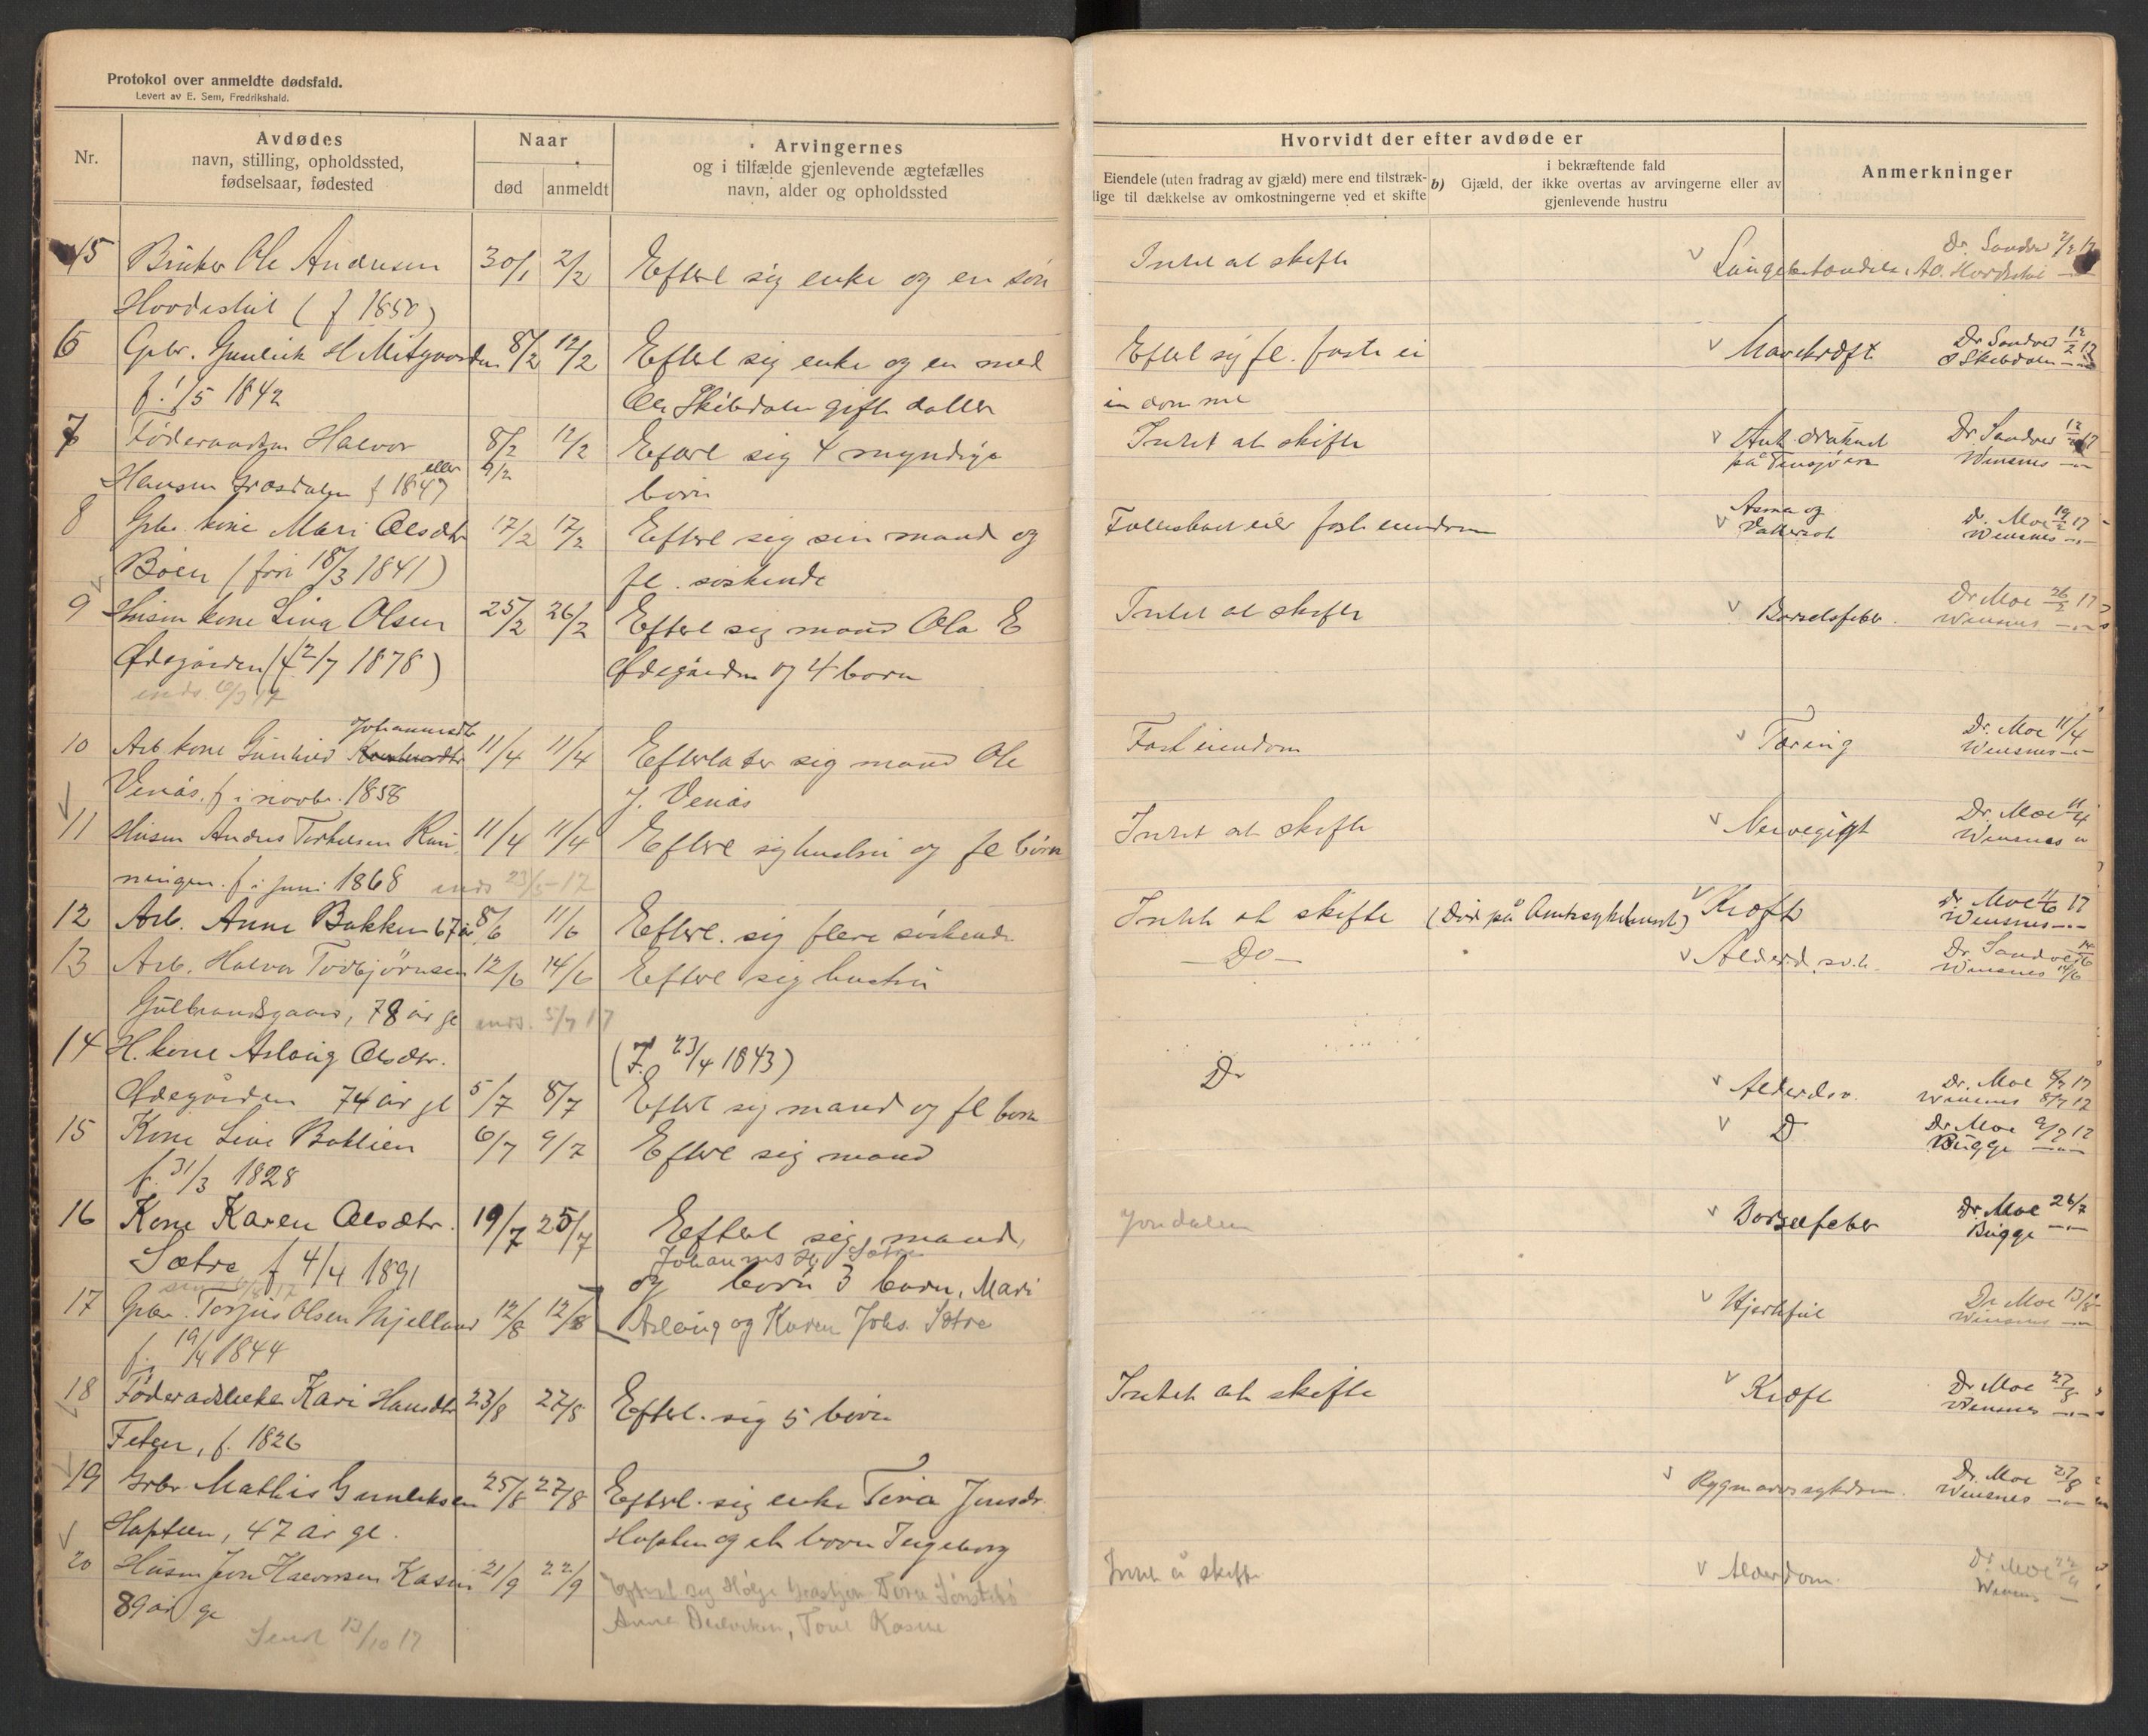 Protokol over anmeldte dødsfald.
Levert av E. Sem, Fredrikshald.
Nr.
Avdødes
navn, stilling, opholdssted,
fødselsaar, fødested
Naar
død
anmeldt
Arvingernes
og i tilfælde gjenlevende ægtefælles
navn, alder og opholdssted
Hvorvidt der efter avdøde er
Eiendele (uten fradrag av gjæld) mere end tilstræk-
lige til dækkelse av omkostningerne ved et skifte
i bekræftende fald
b) Gjæld, der ikke overtas av arvingerne eller av
gjenlevende hustru
Anmerkninger
5 Ole Andersen 30/1 2/2 Efterl sig enke og en søn Intet at skifte Dr. Sandvei 2/2 17
(f 1850)
6 Gbr. Gunleik H Mitgaarden 8/2 12/2 Efterl sig enke og en med Efterl sig fl. faste ei Mavekræft Dr Sandvei 12/2 17
f. 1/5 1842 Ole Skibdalen gift datter
7 Halvor 8/2 12/2 Efterl sig 4 myndige Intet at skifte Dr Sandvei 12/2 17
eller
Hansen f 1847 9/2 børn Wensnes
8 Gbr. kone Mari Olsdtr 17/2 17/2 Efterl sig sin mand og Asma og Dr. Moe 19/2 17
Böen 18/3 1841) fl. søskende Wensnes
9 Husm kone Lina Olsen 25/2 26/2 Efterl sig mand Ola E Intet at skifte Barselsfeber. Dr Moe 26/2 17
Ødegården (f. 2/7 1878) Ødegården og 4 børn Wensnes
Johannesdtr
10 Arb. kone Gunhild 11/4 11/4 Efterlater sig mand Ole Fast eiendom Tæring Dr. Moe 11/4
Venås. f i novbr. 1858 J. Venås Wensnes
11 Husm Anders Terkelsen 11/4 11/4 Efterl sig hustru og fl børn Intet at skifte Dr. Moe 11/4
ningen. f i juni 1868 ends 23/5-17 Wensnes
12 Arb. Anne Bakken 67 år 8/6 11/6 Efterl. sig flere søskende Intet at skifte (Død på Amtssykehuset) Kræft Dr. Moe 11/6 17
Wensnes
13 Arb. Halvor Torbjörnsen 12/6 14/6 Efterl sig hustru — Do — Alderd.sv.h. Dr. Sandvei 14/6
Gulbrandsgaard, 78 år gl ends. 5/7 17 Wensnes 14/6
14 H. kone Aslaug Olsdtr. (F. 23/4 1843)
Ødegården 74 år gl 5/7 8/7 Efterl sig mand og fl børn Do Alderdsv. Dr. Moe 8/7 17
Wensnes 8/7 17
15 Kone Live Baklien 6/7 9/7 Efterl sig mand D Dr. Moe 9/7 17
f. 31/3 1828 Bugge
16 Kone Karen Olsdtr. 19/7 25/7 Efterl sig mand, Jondalen Barselfeber Dr Moe 26/7
Sætre f 4/4 1891 Johannes H. Sætre Bugge
og børn 3 børn, Mari
17 Gbr. Torjus Olsen Mjelland 12/8 12/8 Aslaug og Karen Johs. Sætre Hjertefeil Dr Moe 13/8
f. 19/4 1844 Wensnes
18 Føderadsenke Kari Hansdtr 23/8 27/8 Efterl. sig 5 børn Intet at skifte Kræft Dr Moe 27/8
Feten, f. 1826 Wensnes
19 Gbr. Mathis Gunleksen 25/8 27/8 Efterl. sig enke Tina Jensdr. Rygmarvssykdom. Dr. Moe 27/8
Hapteen, 47 år gl. og et barn Ingeborg Wensnes
20 Husm Jon Halvorsen Kasin 21/9 22/9 Efterl sig Intet å skifte Alderdom. Dr Moe
89 år gl Anne Tone Kasin
Sendt 13/10 17